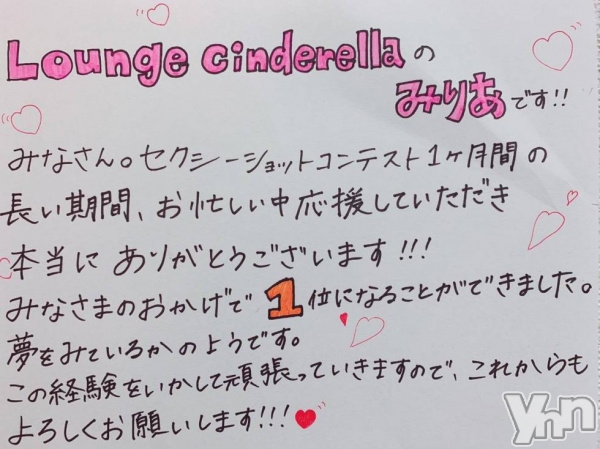 Lounge cinderellaの
みりあです!!
みなさん。セクシーショットコンテスト1ヶ月間の
長い期間、お忙しい中応援していただき
本当に ありがとうございます!!!
みなさまのおかげで 1位になることができました。
夢をみているかのようです。
この経験をいかして頑張っていきますので、これからも
よろしくお願いします!!!
yhnn